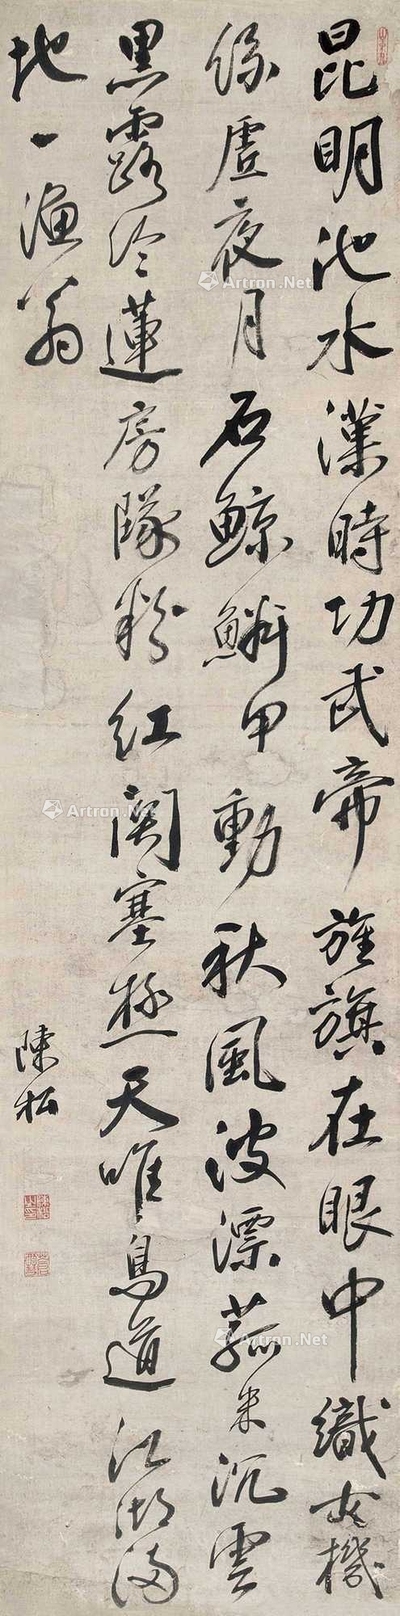 昆明池水漢時功武帝旌旗在眼中織女機
絲虛夜月石鯨鱗甲動秋風波漂菰米沉雲
黑露冷蓮房墜粉紅関塞極天唯鳥道江湖滿
地一漁翁
陳松
Artron.Net
Artron.Net
Artron.Net